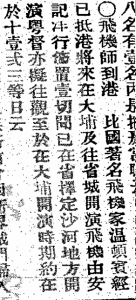 ○飛機師到港　比國著名飛機家温頓賓經
已抵港將來在大埔及往省城開演飛機由安
記洋行佈置一切聞已在省擇定沙河地方開
演粤督亦擬往觀至於在大埔開演時期約在
於十壹弍三等日云